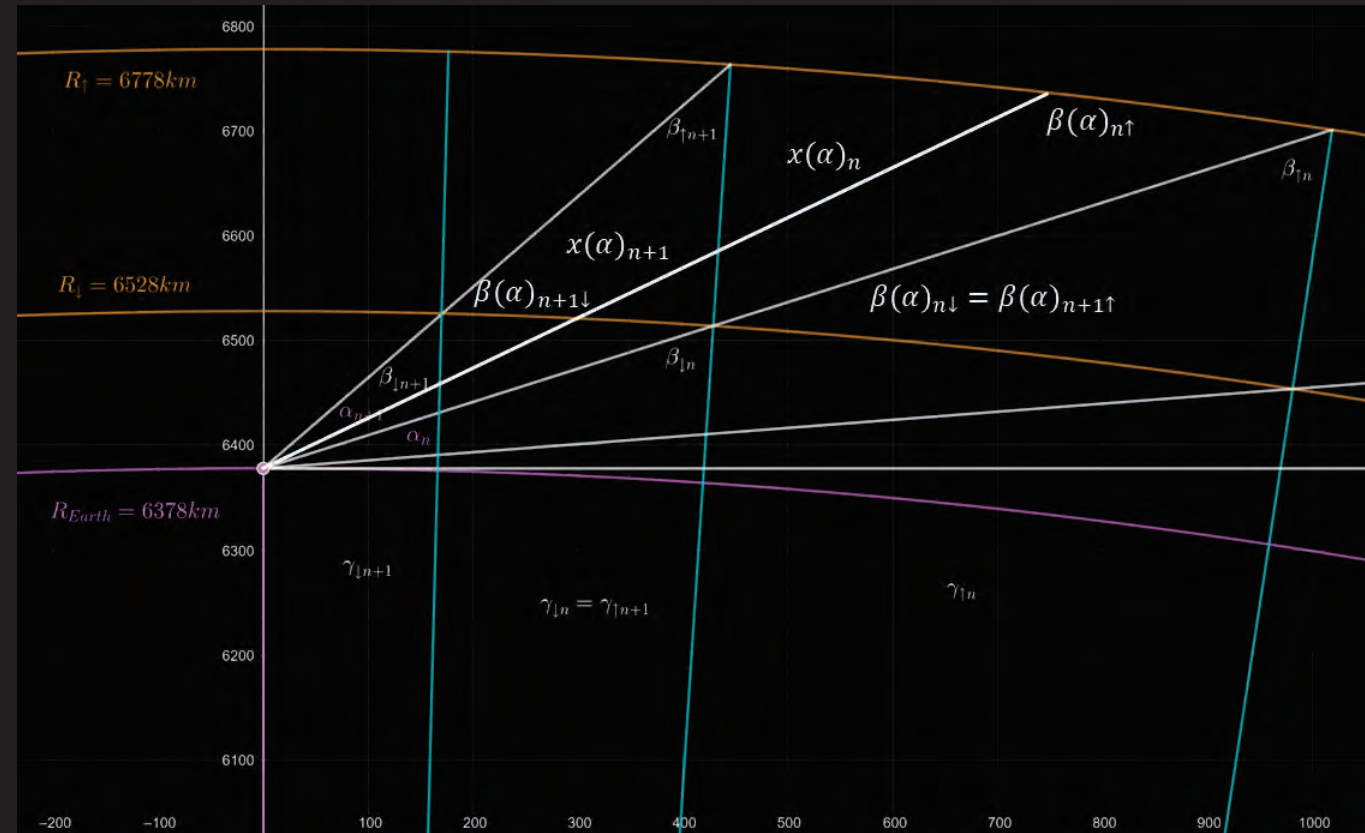 6800
R↑ = 6778km
β↑n+1
β(α)n↑
6700
x(α)n
β↑n
6600
x(α)n+1
R↓ = 6528km
β(α)n+1↓
β(α)n↓ = β(α)n+1↑
6500
β↓n
β↓n+1
αn+1
αn
6400
REarth = 6378km
6300
γ↓n+1
γ↓n = γ↑n+1
γ↑n
6200
6100
−200 −100 100 200 300 400 500 600 700 800 900 1000